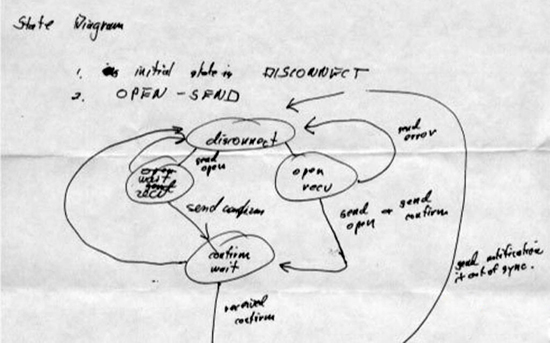 State Diagram
1. initial state is DISCONNECT
2. OPEN - SEND
disconnect
send
open
send
error
open
wait
recv
open
recv
send confirm
send
open
send
confirm
confirm
wait
send notification
if out of sync.
received
confirm